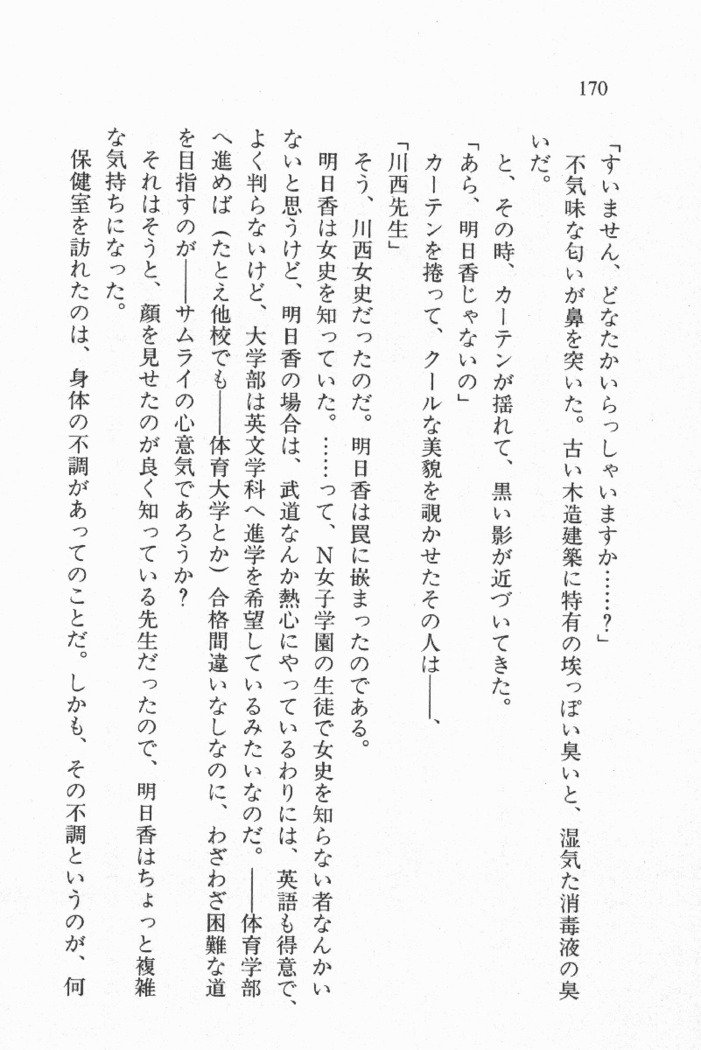 170
「すいません、どなたかいらっしゃいますか……?」
不気味な匂いが鼻を突いた。古い木造建築に特有の埃っぽい臭いと、湿気た消毒液の臭
いだ。
と、その時、カーテンが揺れて、黒い影が近づいてきた。
「あら、明日香じゃないの」
カーテンを捲って、クールな美貌を覗かせたその人は――、
「川西先生」
そう、川西女史だったのだ。明日香は罠に嵌まったのである。
明日香は女史を知っていた。……って、N女子学園の生徒で女史を知らない者なんかい
ないと思うけど、明日香の場合は、武道なんか熱心にやっているわりには、英語も得意で、
よく判らないけど、大学部は英文学科へ進学を希望しているみたいなのだ。――体育学部
へ進めば(たとえ他校でも――体育大学とか)合格間違いなしなのに、わざわざ困難な道
を目指すのが――サムライの心意気であろうか?
それはそうと、顔を見せたのが良く知っている先生だったので、明日香はちょっと複雑
な気持ちになった。
保健室を訪れたのは、身体の不調があってのことだ。しかも、その不調というのが、何